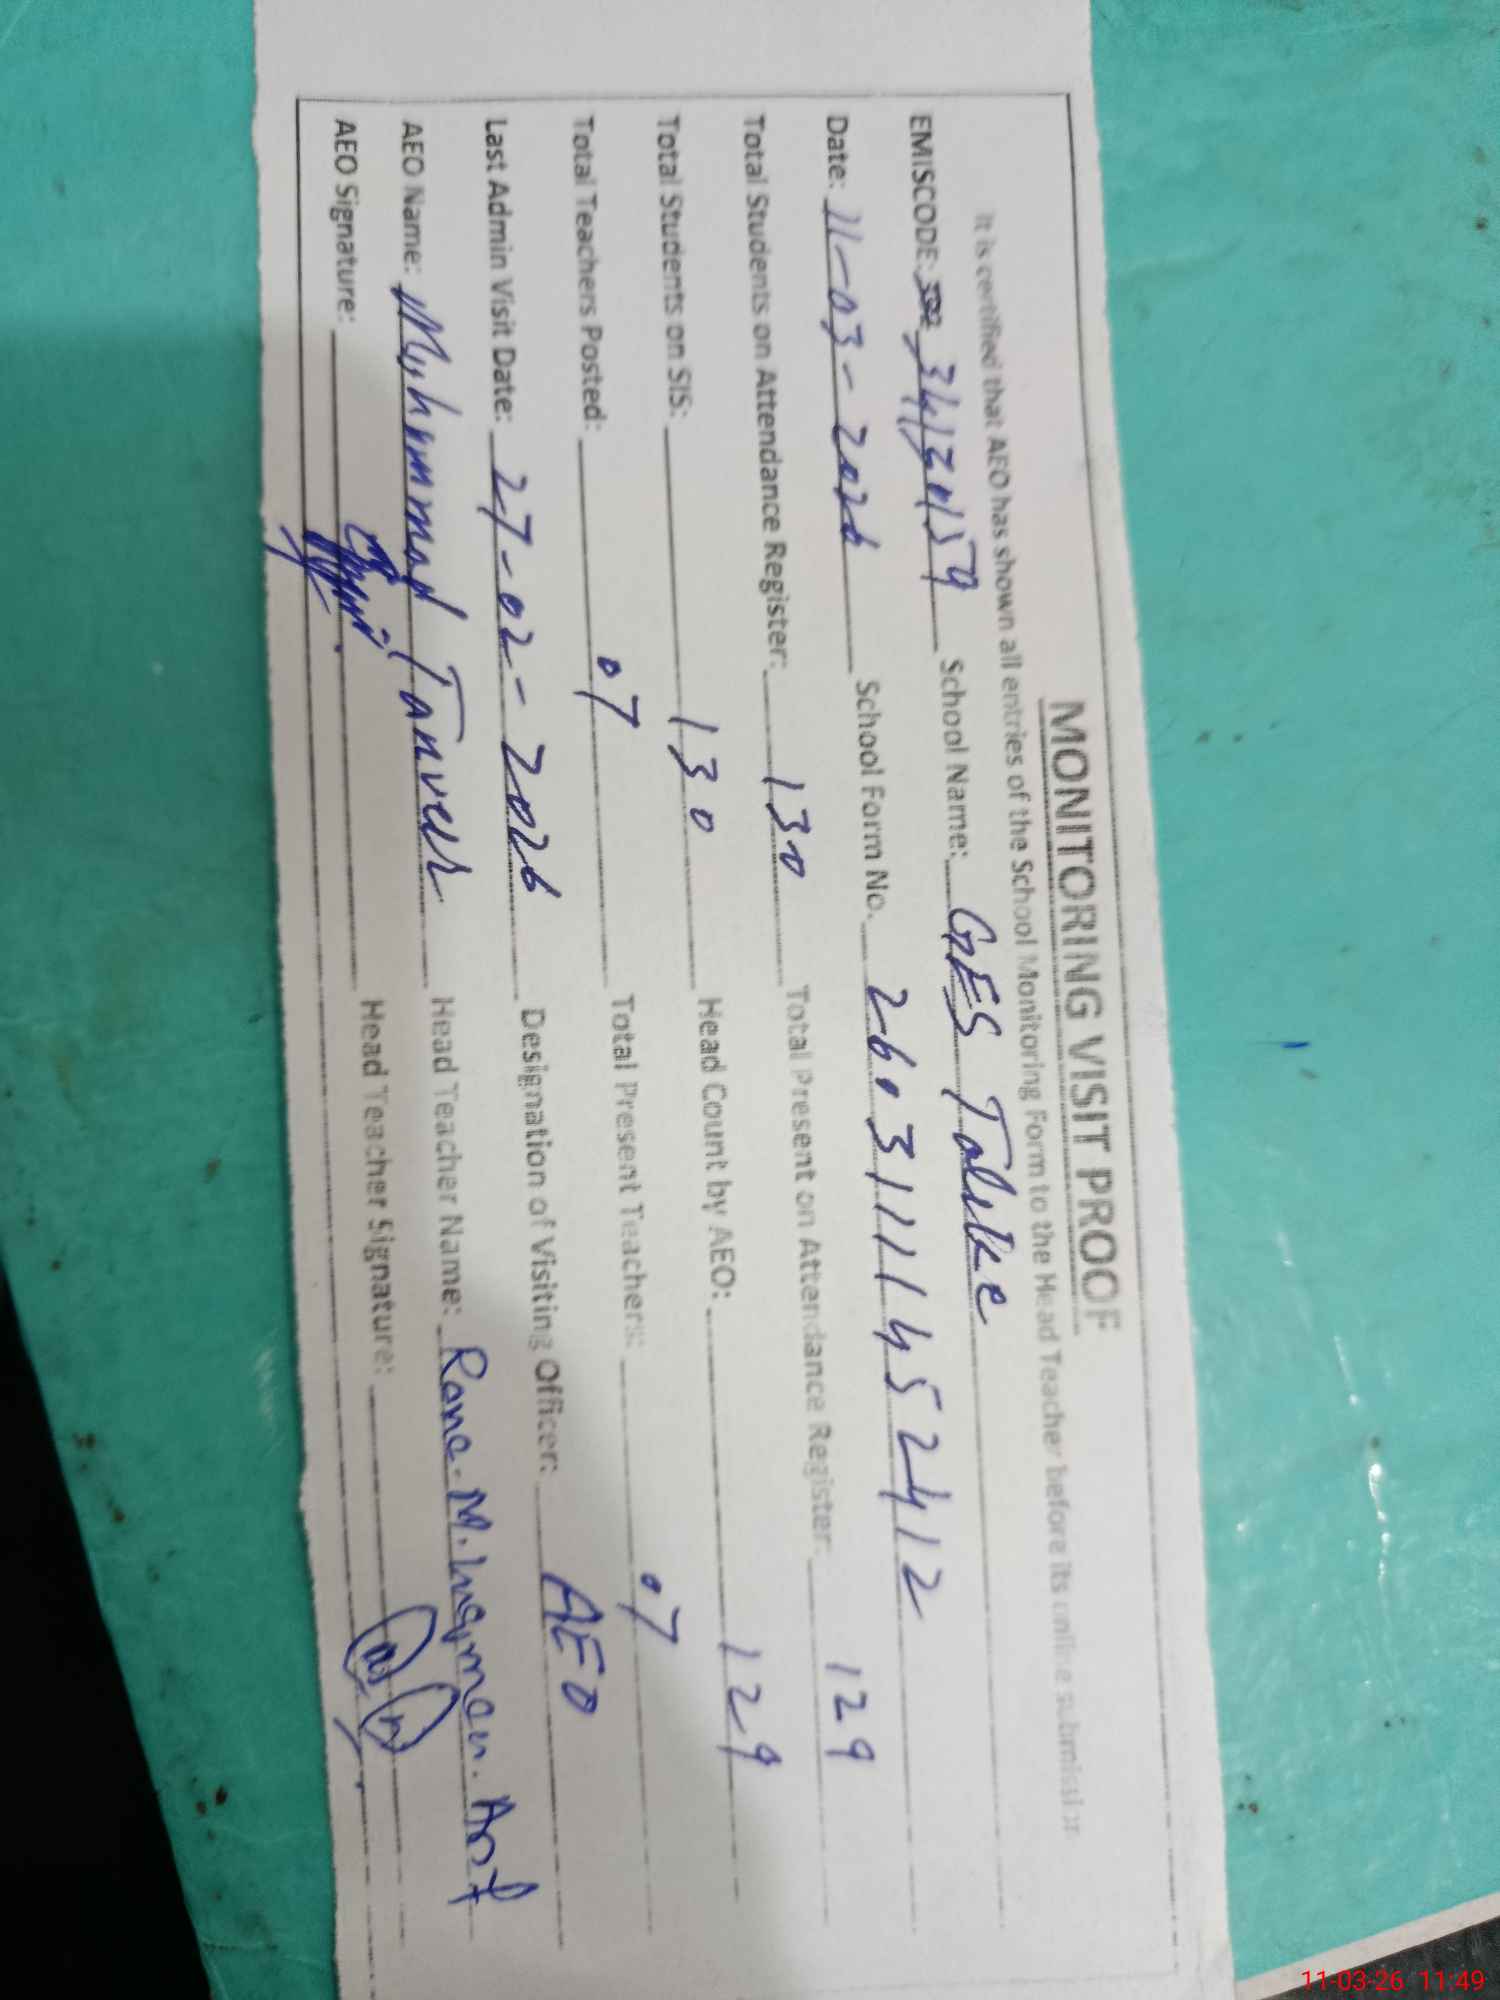 MONITORING VISIT PROOF
It is certified that AEO has shown all entries of the School Monitoring Form to the Head Teacher before its online submission
EMISCODE: 34130159 School Name: GES Talike
Date: 11-03-2026 School Form No. 2603111452412
Total Students on Attendance Register: 130 Total Present on Attendance Register: 129
Total Students on SIS: 130 Head Count by AEO: 129
Total Teachers Posted: 07 Total Present Teachers: 07
Last Admin Visit Date: 27-02-2026 Designation of Visiting Officer: AEO
AEO Name: Muhammad Tanveer Head Teacher Name: Rana. M. Luqman.
AEO Signature: Head Teacher Signature:
11-03-26 11:49